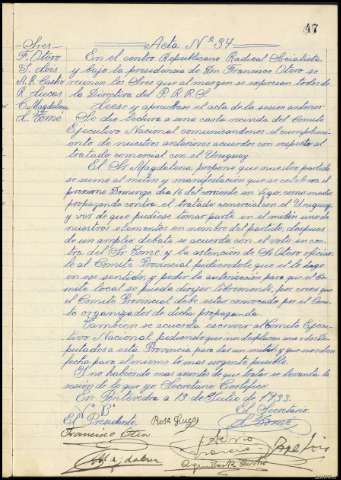 47
Sres
Acta Nº 37
F. Otero
En el centro Republicano Radical Socialista
y bajo la presidencia de Don Francisco Otero se
M. R. Castro
reunen los Sres que al margen se expresan todos de
R. Lucas
la Directiva del P.R.R.S.
C. Magdalena
Leese y apruebase el acta de la sesion anterior
A. Tomé
Se dio lectura a una carta recivida del Comité
Ejecutivo Nacional comunicandonos el cumplimi-
ento de nuestros anteriores acuerdos con respecto al
tratado comercial con el Uruguay
El Sr Magdalena propone que nuestro partido
se sume al mitin y manifestacion que se celebrara el
proximo Domingo dia 16 del corriente en Lugo como medio
propaganda contra el tratado comercial con el Uruguay
y vista de que pudiese tomar parte en el mitin uno de
nuestros elementos en nombre del partido, despues
de un amplio debate se acuerda con el voto en con-
tra del Sr Tomé y la abstencion de Sr Otero oficiar
al Comité Provincial pidiendole que el lo haga
en ese sentido y pedir la autorizacion para que el Co-
mite local se pueda dirigir libremente, por creer que
el Comite Provincial debe estar convocado por el Comi-
te organizador de dicha propaganda.
Tambien se acuerda escribir al Comite Ejecu-
tivo Nacional pidiendo que nos desplacen uno o dos Di-
putados a esta Provincia para dar un mitin y que manden
fecha para el mismo lo mas urgente posible.
Y no habiendo mas asuntos de que tratar se levanta la
sesión de lo que yo Secretario Certifico.
En Pontevedra a 13 de Julio de 1933.
Vº Bº
El Secretario
El Presidente
A Tomé
Francisco Otero